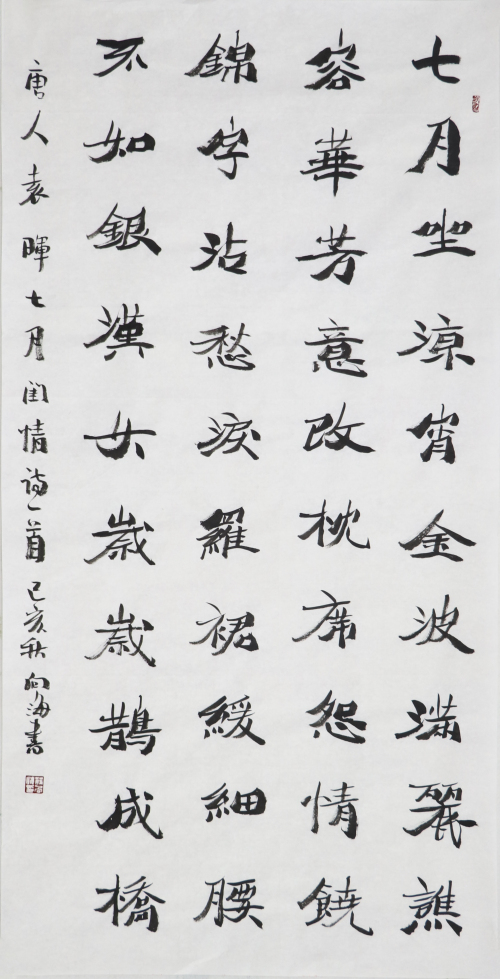 七月坐凉宵金波滿麗譙
容華芳意改枕席怨情饒
錦字沾愁淚羅裙緩細腰
不如銀漢女歲歲鵲成橋
唐人袁暉七月闺情诗一首己亥秋向海書